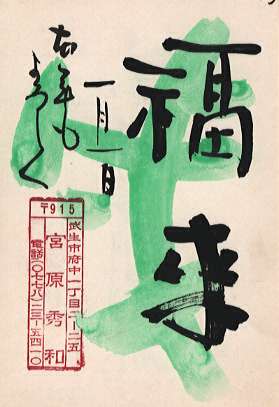 福来
一月一日
本年も
よろしく
〒915
武生市府中一丁目二－二五
宮原秀和
電話(〇七七八)二三－五四一〇